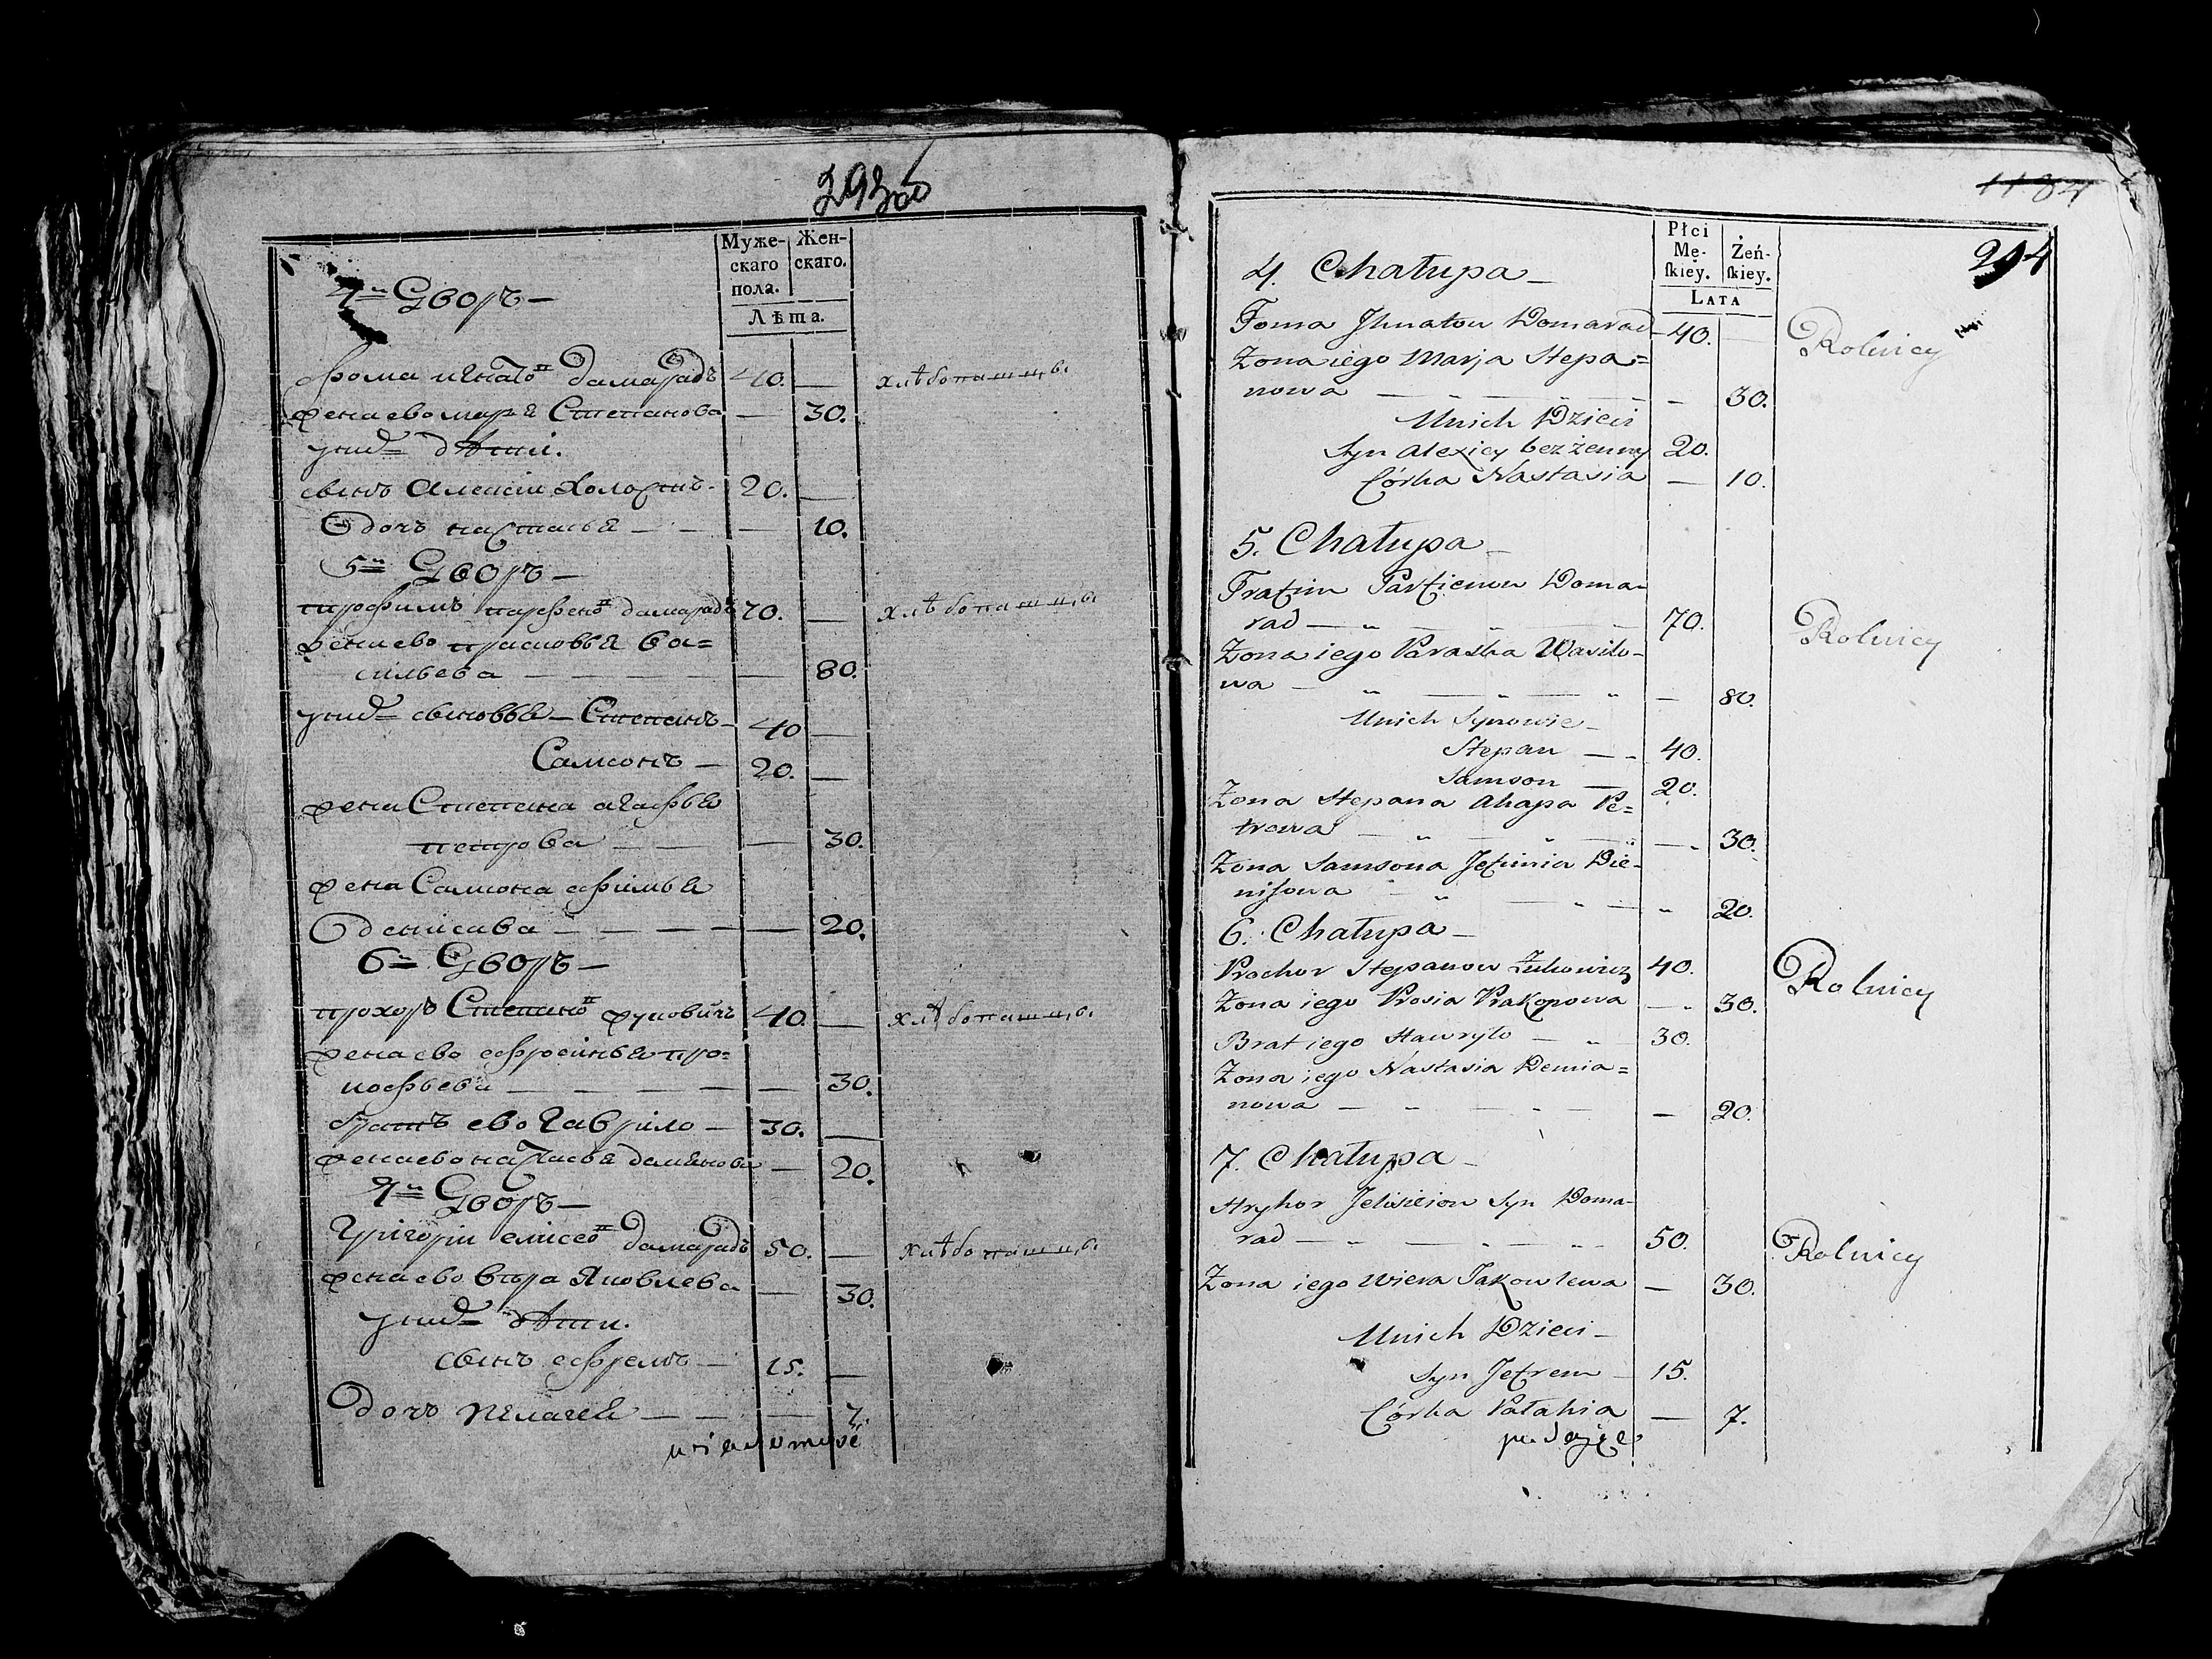 293об
Муже-
скаго
пола.
Жен-
скаго.
Лѣта.
4й Дворъ —
Фома игнатоⷡ Дамарадъ 40. —
жена ево маръя Степанова — 30.
униⷯ дѣти.
сынъ Алексѣи холостъ - 20. —
Дочъ настасья — — — 10.
хлѣбопашцы
5й Дворъ —
трофимъ парфеноⷡ дамарадъ 70. —
хлѣбопашцы
жена ево прасковья ва=
сильева — — — — — 80.
униⷯ сыновья — Степанъ — 40 —
Самсонъ — 20. —
жена Степана агафья
петрова — — — 30.
жена Самсона ефимья
Денисава — — — — — 20.
6й Дворъ —
прохоръ Степаноⷡ жуковичъ 40. —
хлѣбопашцы
жена ево ефросинья про=
кофьева — — — — — 30.
братъ ево гаврило — 30. —
жена ево настасья дамянова — 20.
7й Дворъ —
григори елисеоⷡ дамарадъ 50. —
хлѣбопашцы
жена ево вѣра Яковлева — 30.
униⷯ дѣти.
сынъ ефремъ — 15. —
Дочъ пелагея — — — 7.
wiadomość
1184
294
Płci
Mę-
ſkiey.
Żeń-
ſkiey.
LATA
4. Chałupa —
Foma Jhnatow Domarad 40. —
Rolnicy
Żona iego Marja Stepa=
nowa — — — — 30.
Unich Dzieci
Syn Alexiey bezżenny 20.
Córka Nastasia — 10.
5. Chałupa —
Trafim Parfienow Doma-
rad — „ — „ — 70.
Rolnicy
Żona iego Paraska Wasilo-
wa — „ — „ — „ — 80.
Unich Synowie —
Stepan — - 40.
Samson — 20.
Żona Stepana Ahapa Pe=
trowa — „ — „ — „ — 30.
Żona Samsona Jefimia Die-
niſowa „ — „ — „ 20.
6. Chałupa —
Prochor Stepanow Żukowicz 40.
Rolnicy
Żona iego Prosia Prakopowa — 30.
Brat iego Hawryło — „ 30.
Żona iego Nastasia Demia=
nowa — - — - — — 20.
7. Chałupa —
Hryhor Jelisieiow Syn Doma-
rad — „ — „ — „ 50.
Rolnicy
Żona iego Wiera Jakowlewa — 30.
Unich Dzieci —
Syn Jefrem — 15.
Córka Pałahia — 7.
podaję